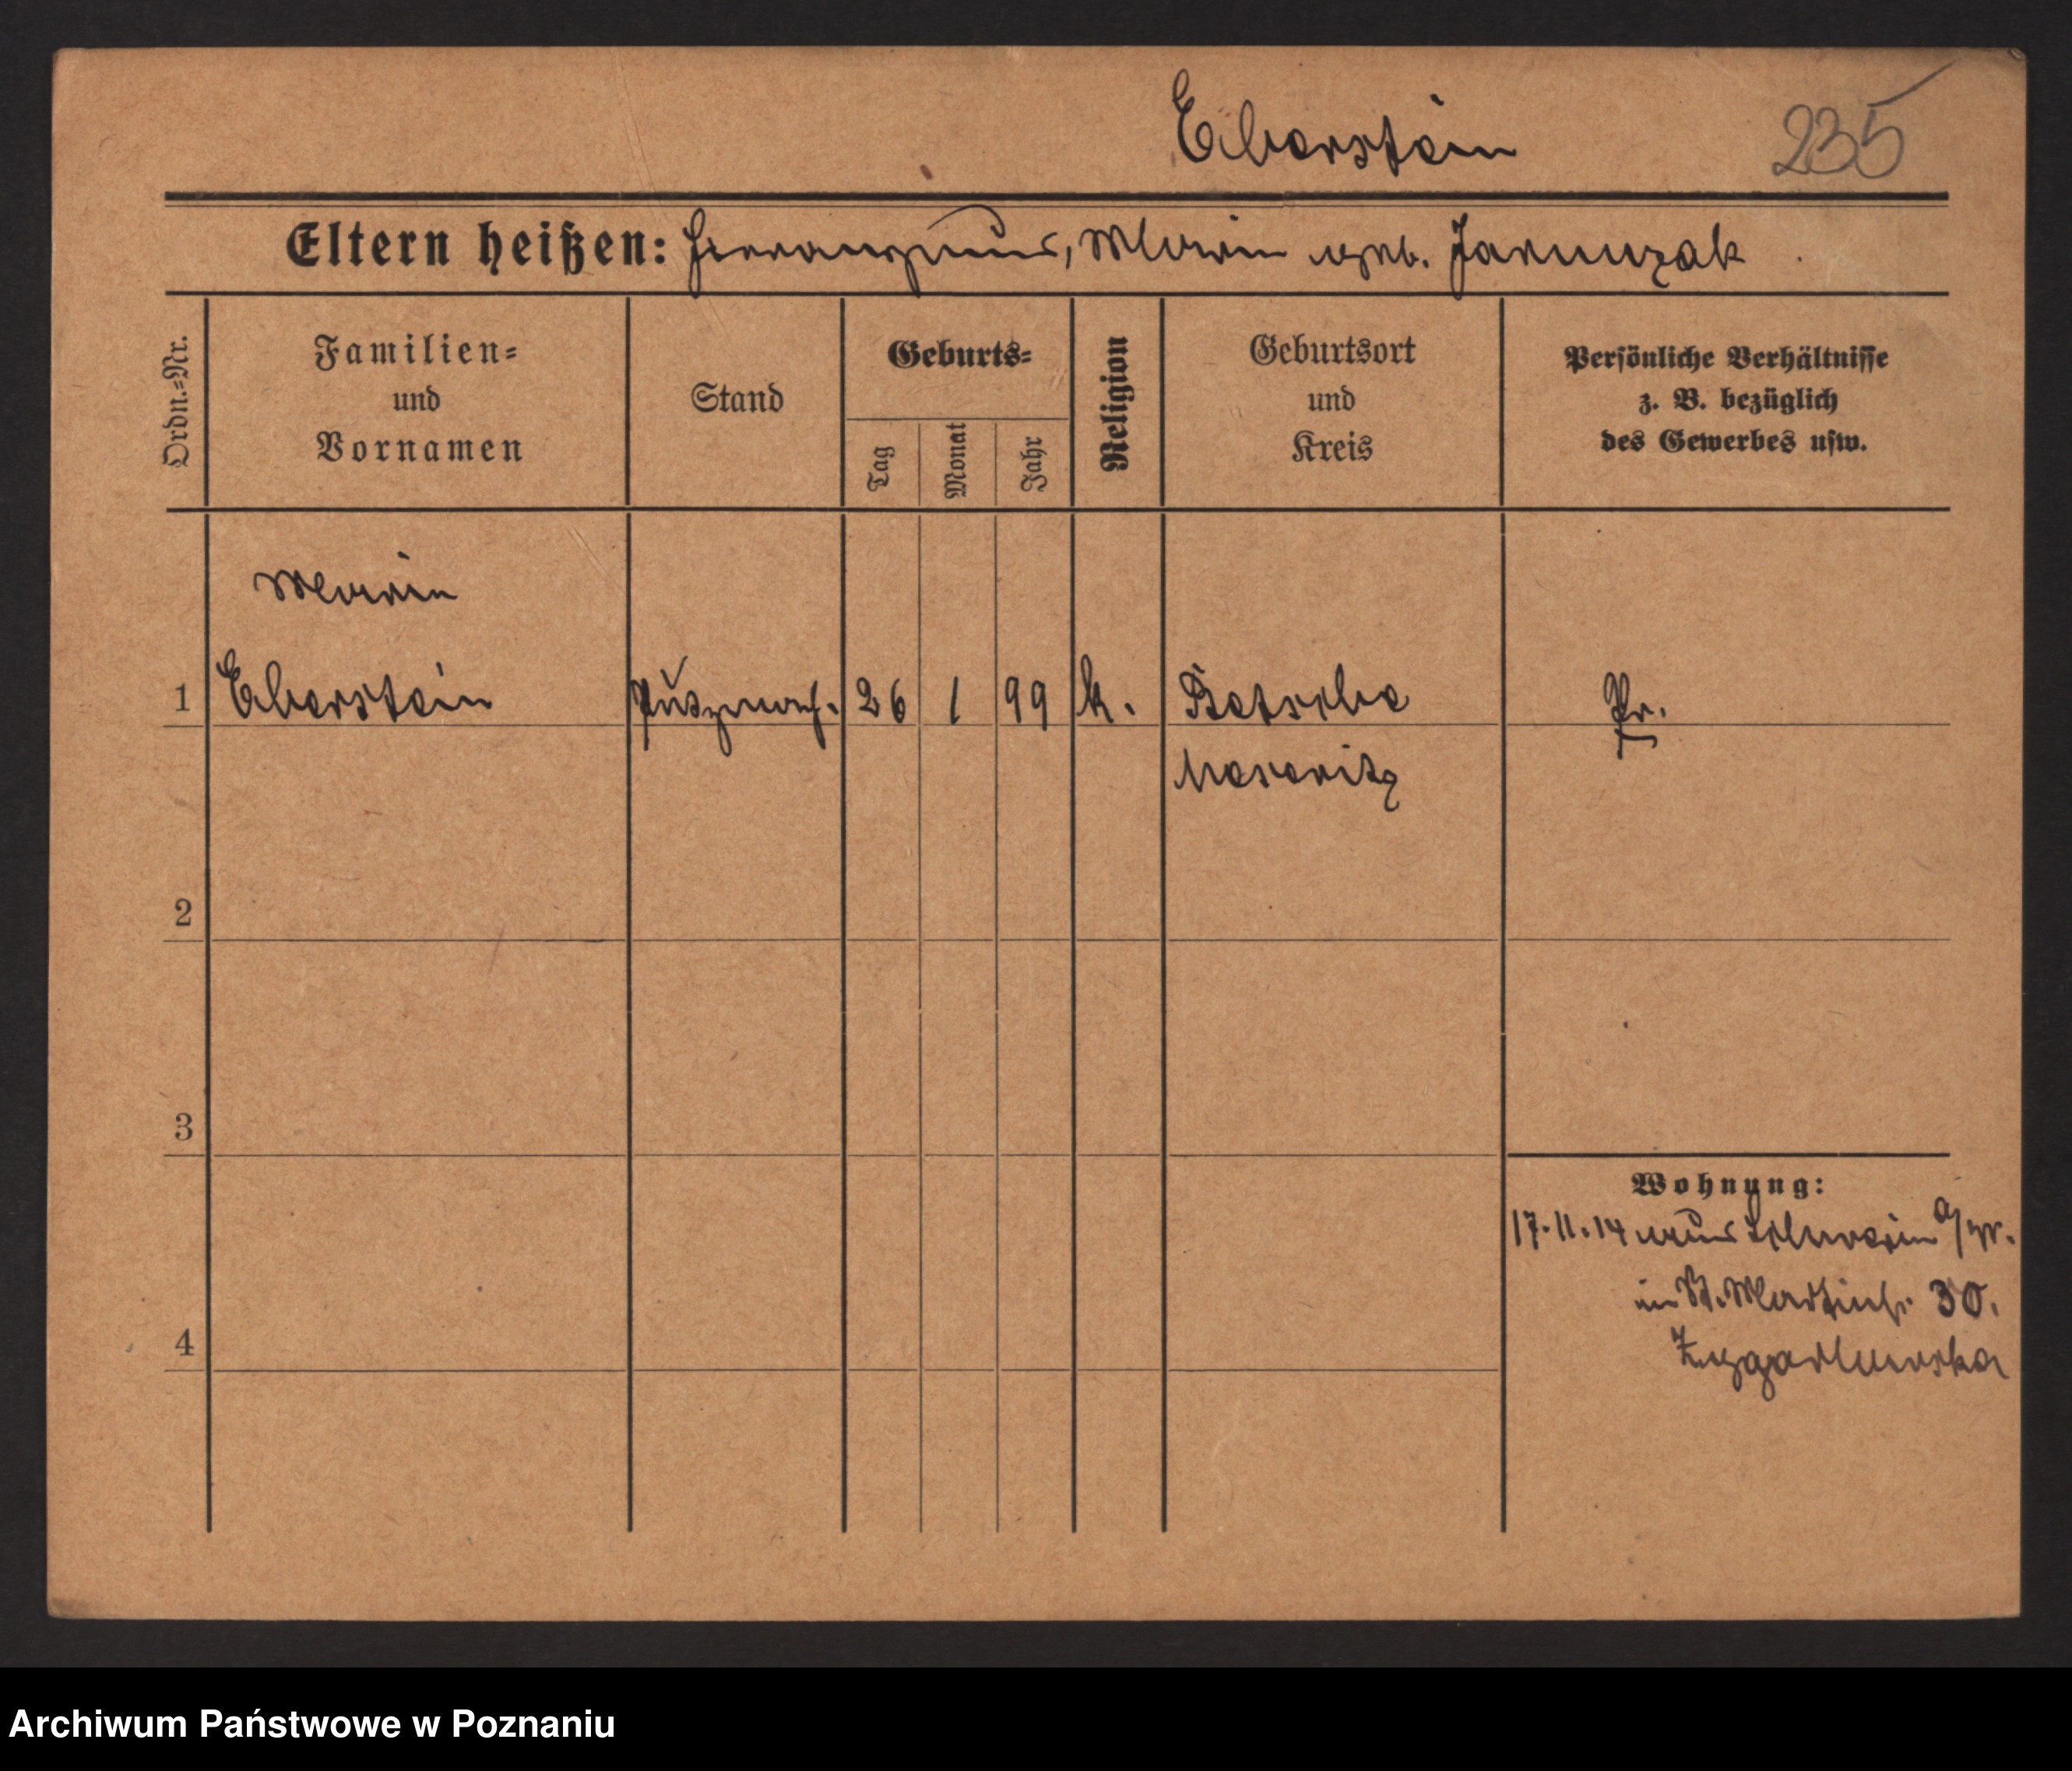 Eberstein 235
Eltern heißen: Hieronymus, Maria geb. Januszak
Ordn.=Nr.
Familien=
und
Vornamen
Stand
Geburts=
Tag
Monat
Jahr
Religion
Geburtsort
und
Kreis
Persönliche Verhältnisse
z. B. bezüglich
des Gewerbes usw.
Maria
1 Eberstein Putzmach. 26 1 99 k. Betsche Pr.
Meseritz
2
3
4
Wohnung:
17.11.14 aus Schwerin a/W.
in St. Martinstr. 30.
Archiwum Państwowe w Poznaniu